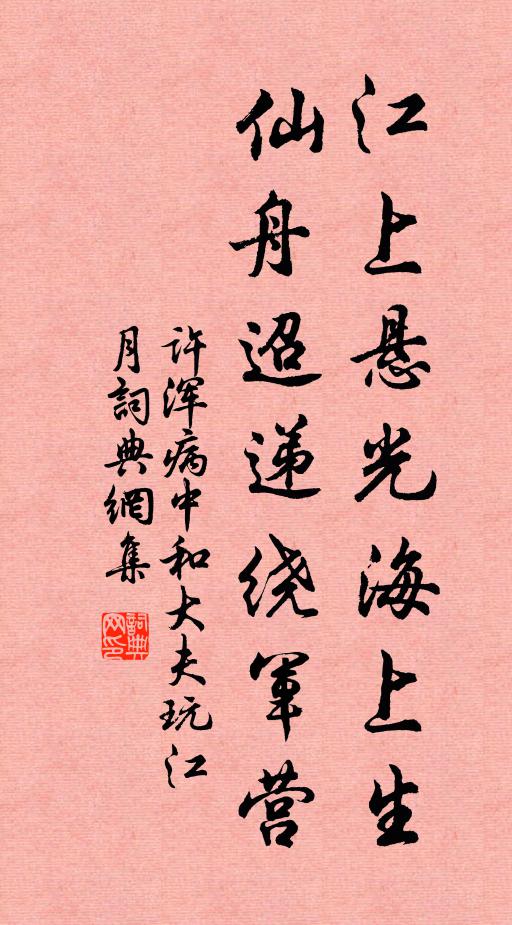 江上悬光海上生
仙舟迢递绕军营
许浑病中和大夫玩江
月詞典網集
詞典
网印